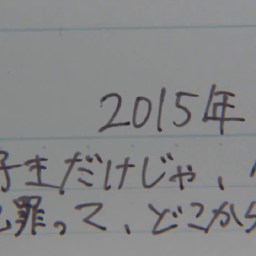 2015年
子生だけじゃ、
罪って、どこから